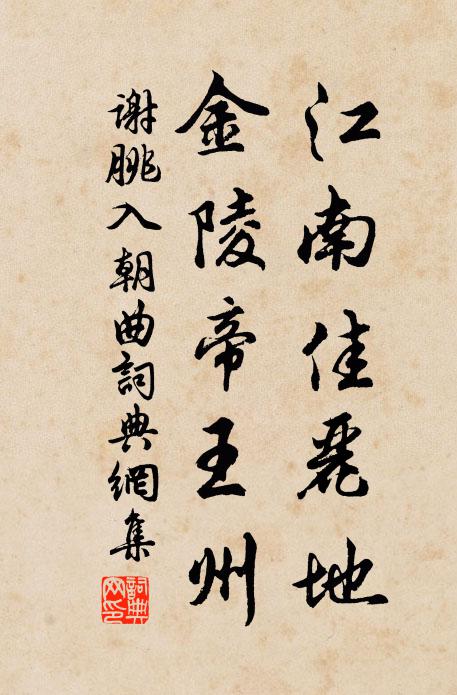 江南佳麗地
金陵帝王州
謝朓入朝曲詞典網集
詞典网印